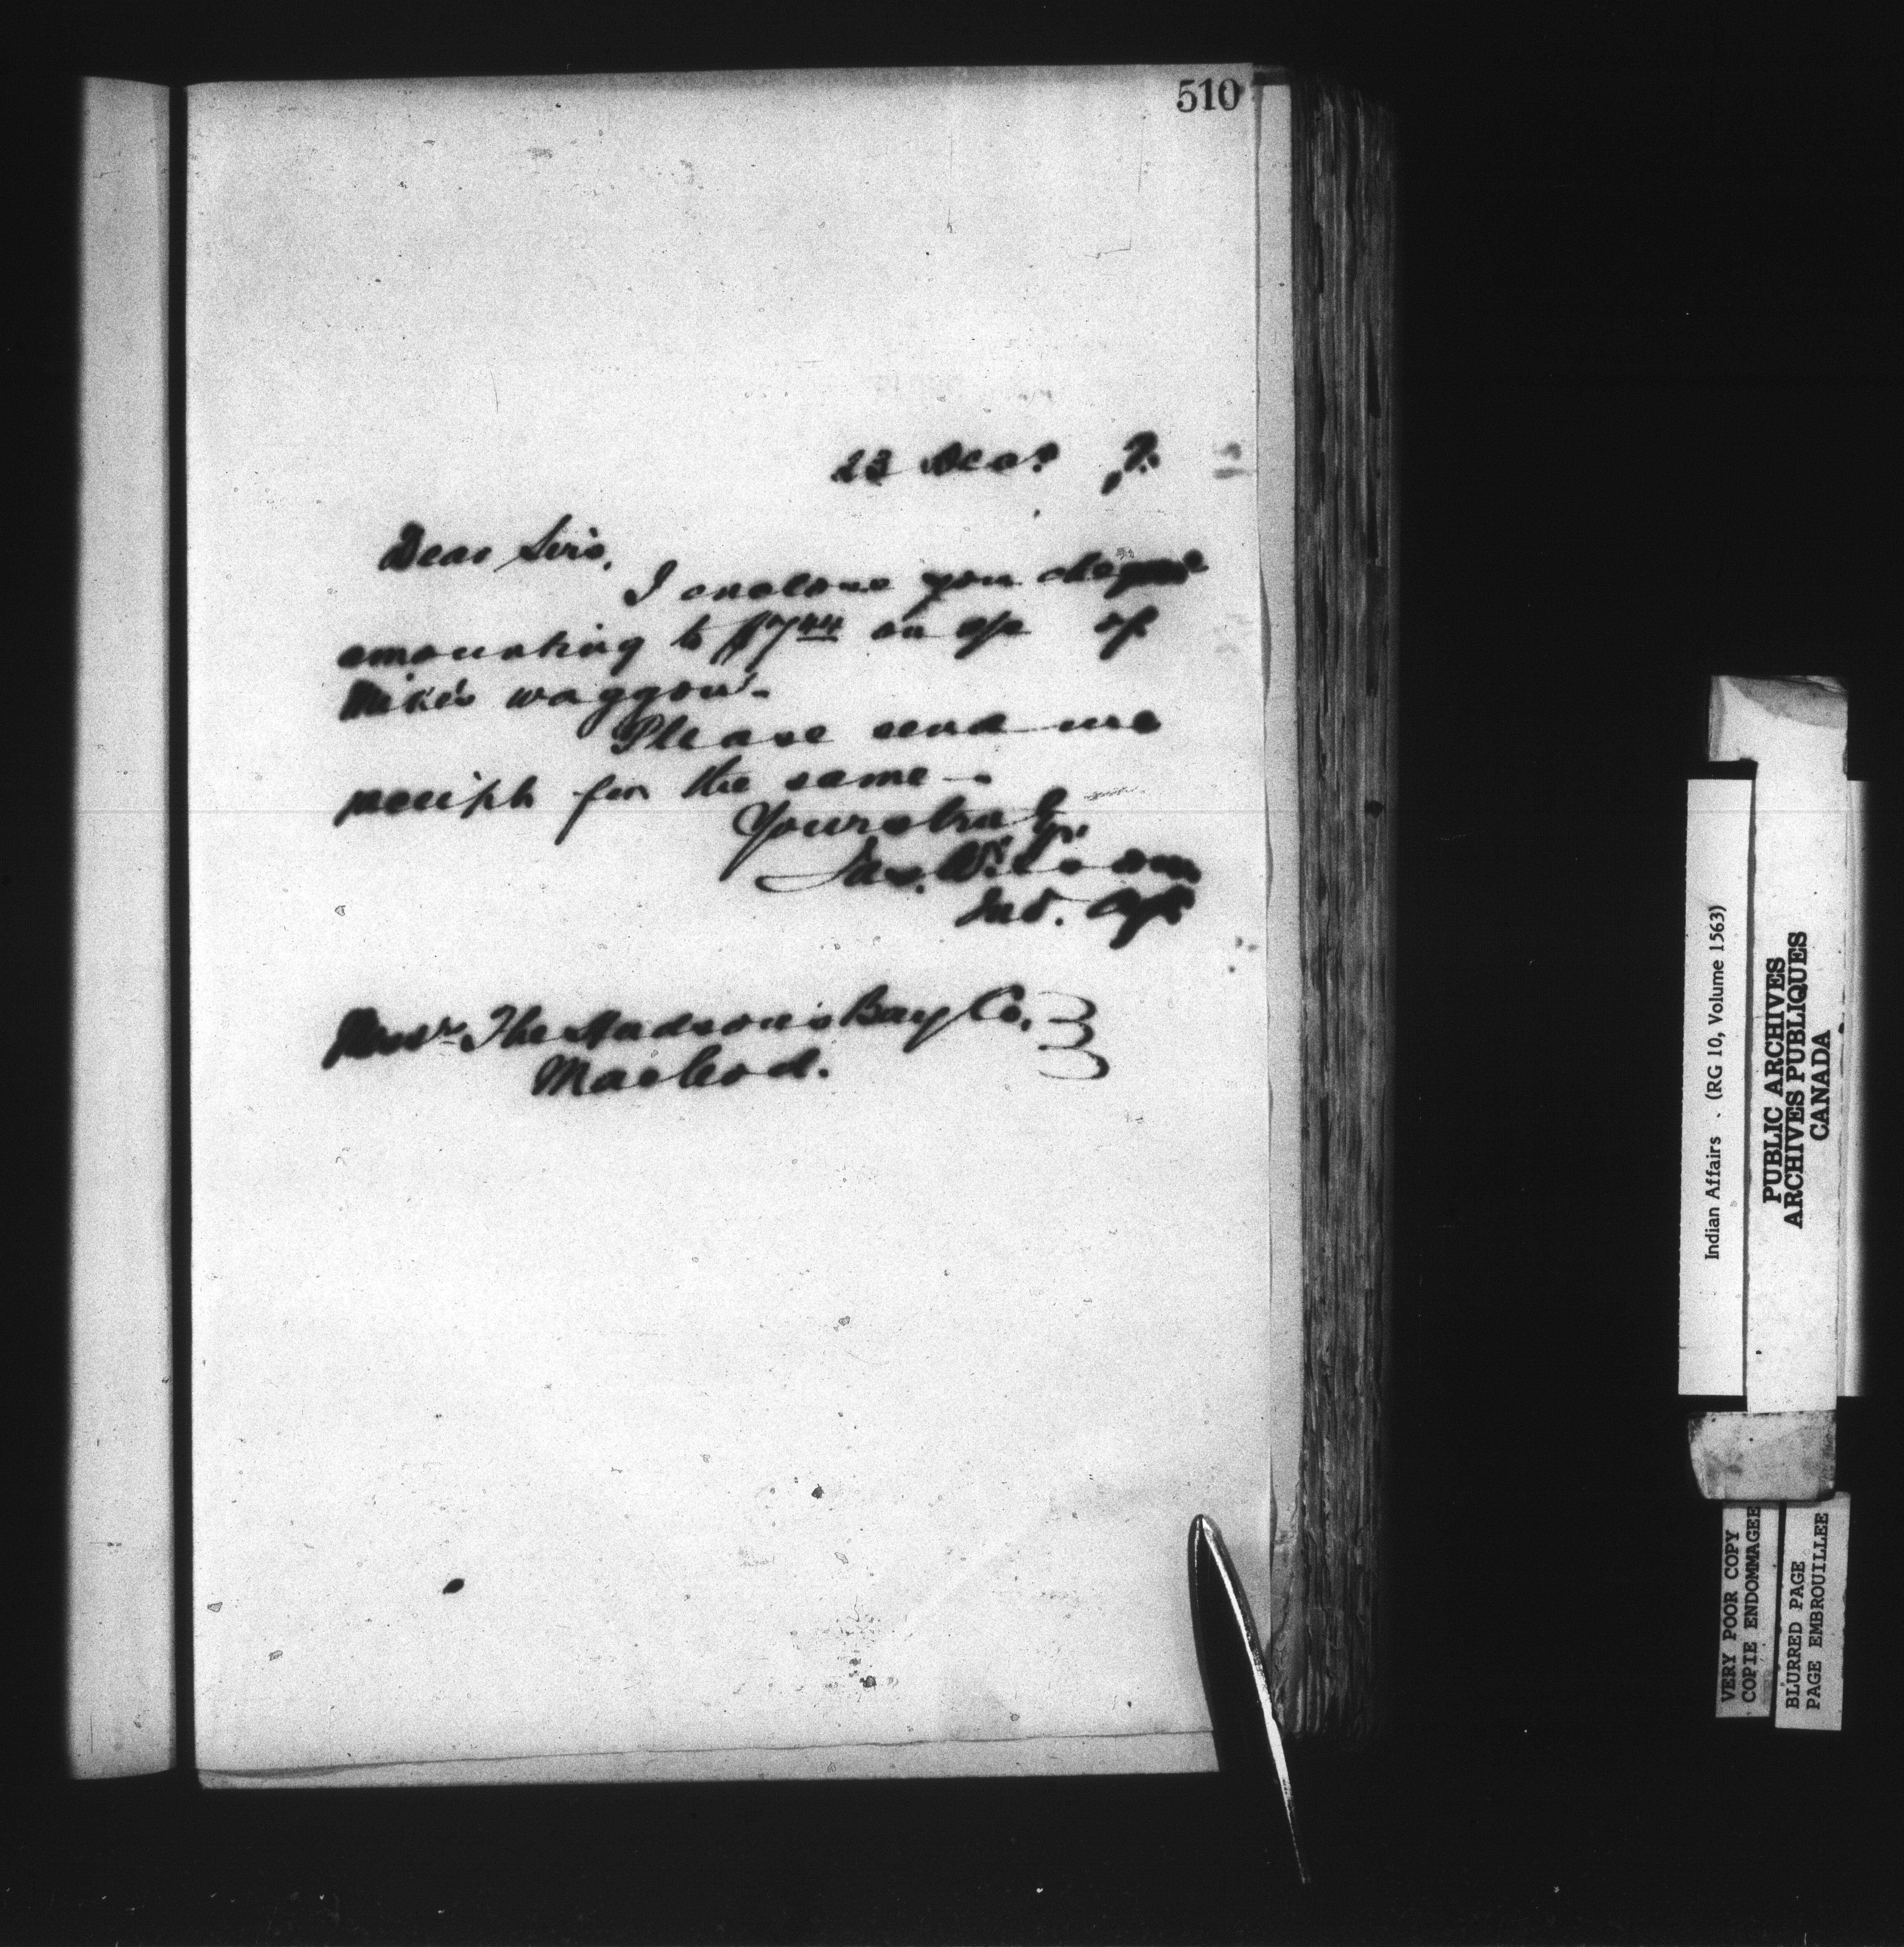 510
23 Dec.
Dear Sirs,
I enclose you cheque
amounting to $7.44 on a/c of
Mike's waggon.
Please send me
receipt for the same —
Yours truly,
Jas. Wilson
Ind. Agt
Messrs The Hudson's Bay Co.
Macleod.
Indian Affairs . (RG 10, Volume 1563)
PUBLIC ARCHIVES
ARCHIVES PUBLIQUES
CANADA
VERY POOR COPY
COPIE ENDOMMAGEE
BLURRED PAGE
PAGE EMBROUILLEE